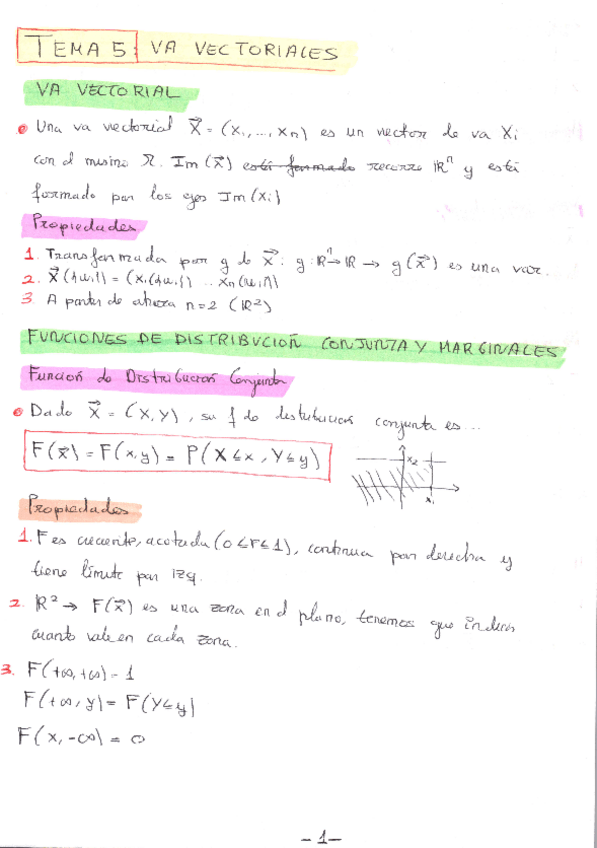 TEMA 5: VA VECTORIALES
VA VECTORIAL
Una va vectorial X⃗ = (X₁, ..., Xn) es un vector de va Xi
con el mismo Ω. Im(X⃗) está formado recorre ℝⁿ y está
formado por los ejes Im(Xi)
Propiedades
1. Transformada por g de X⃗: g: ℝⁿ→ℝ → g(X⃗) es una var.
2. X⃗({ωi}) = (X₁({ωi}) ... Xn({ωi}))
3. A partir de ahora n=2 (ℝ²)
FUNCIONES DE DISTRIBUCIÓN CONJUNTA Y MARGINALES
Función de Distribución Conjunta
Dado X⃗ = (X, Y), su f de distribución conjunta es...
F(x⃗) = F(x,y) = P(X≤x, Y≤y)
x₂
x₁
Propiedades
1. F es creciente, acotada (0≤F≤1), continua por derecha y
tiene límite por izq.
2. ℝ² → F(x⃗) es una zona en el plano, tenemos que indicar
cuanto vale en cada zona.
3. F(+∞,+∞)=1
F(+∞, y) = F(Y≤y)
F(x, -∞) = 0
-1-